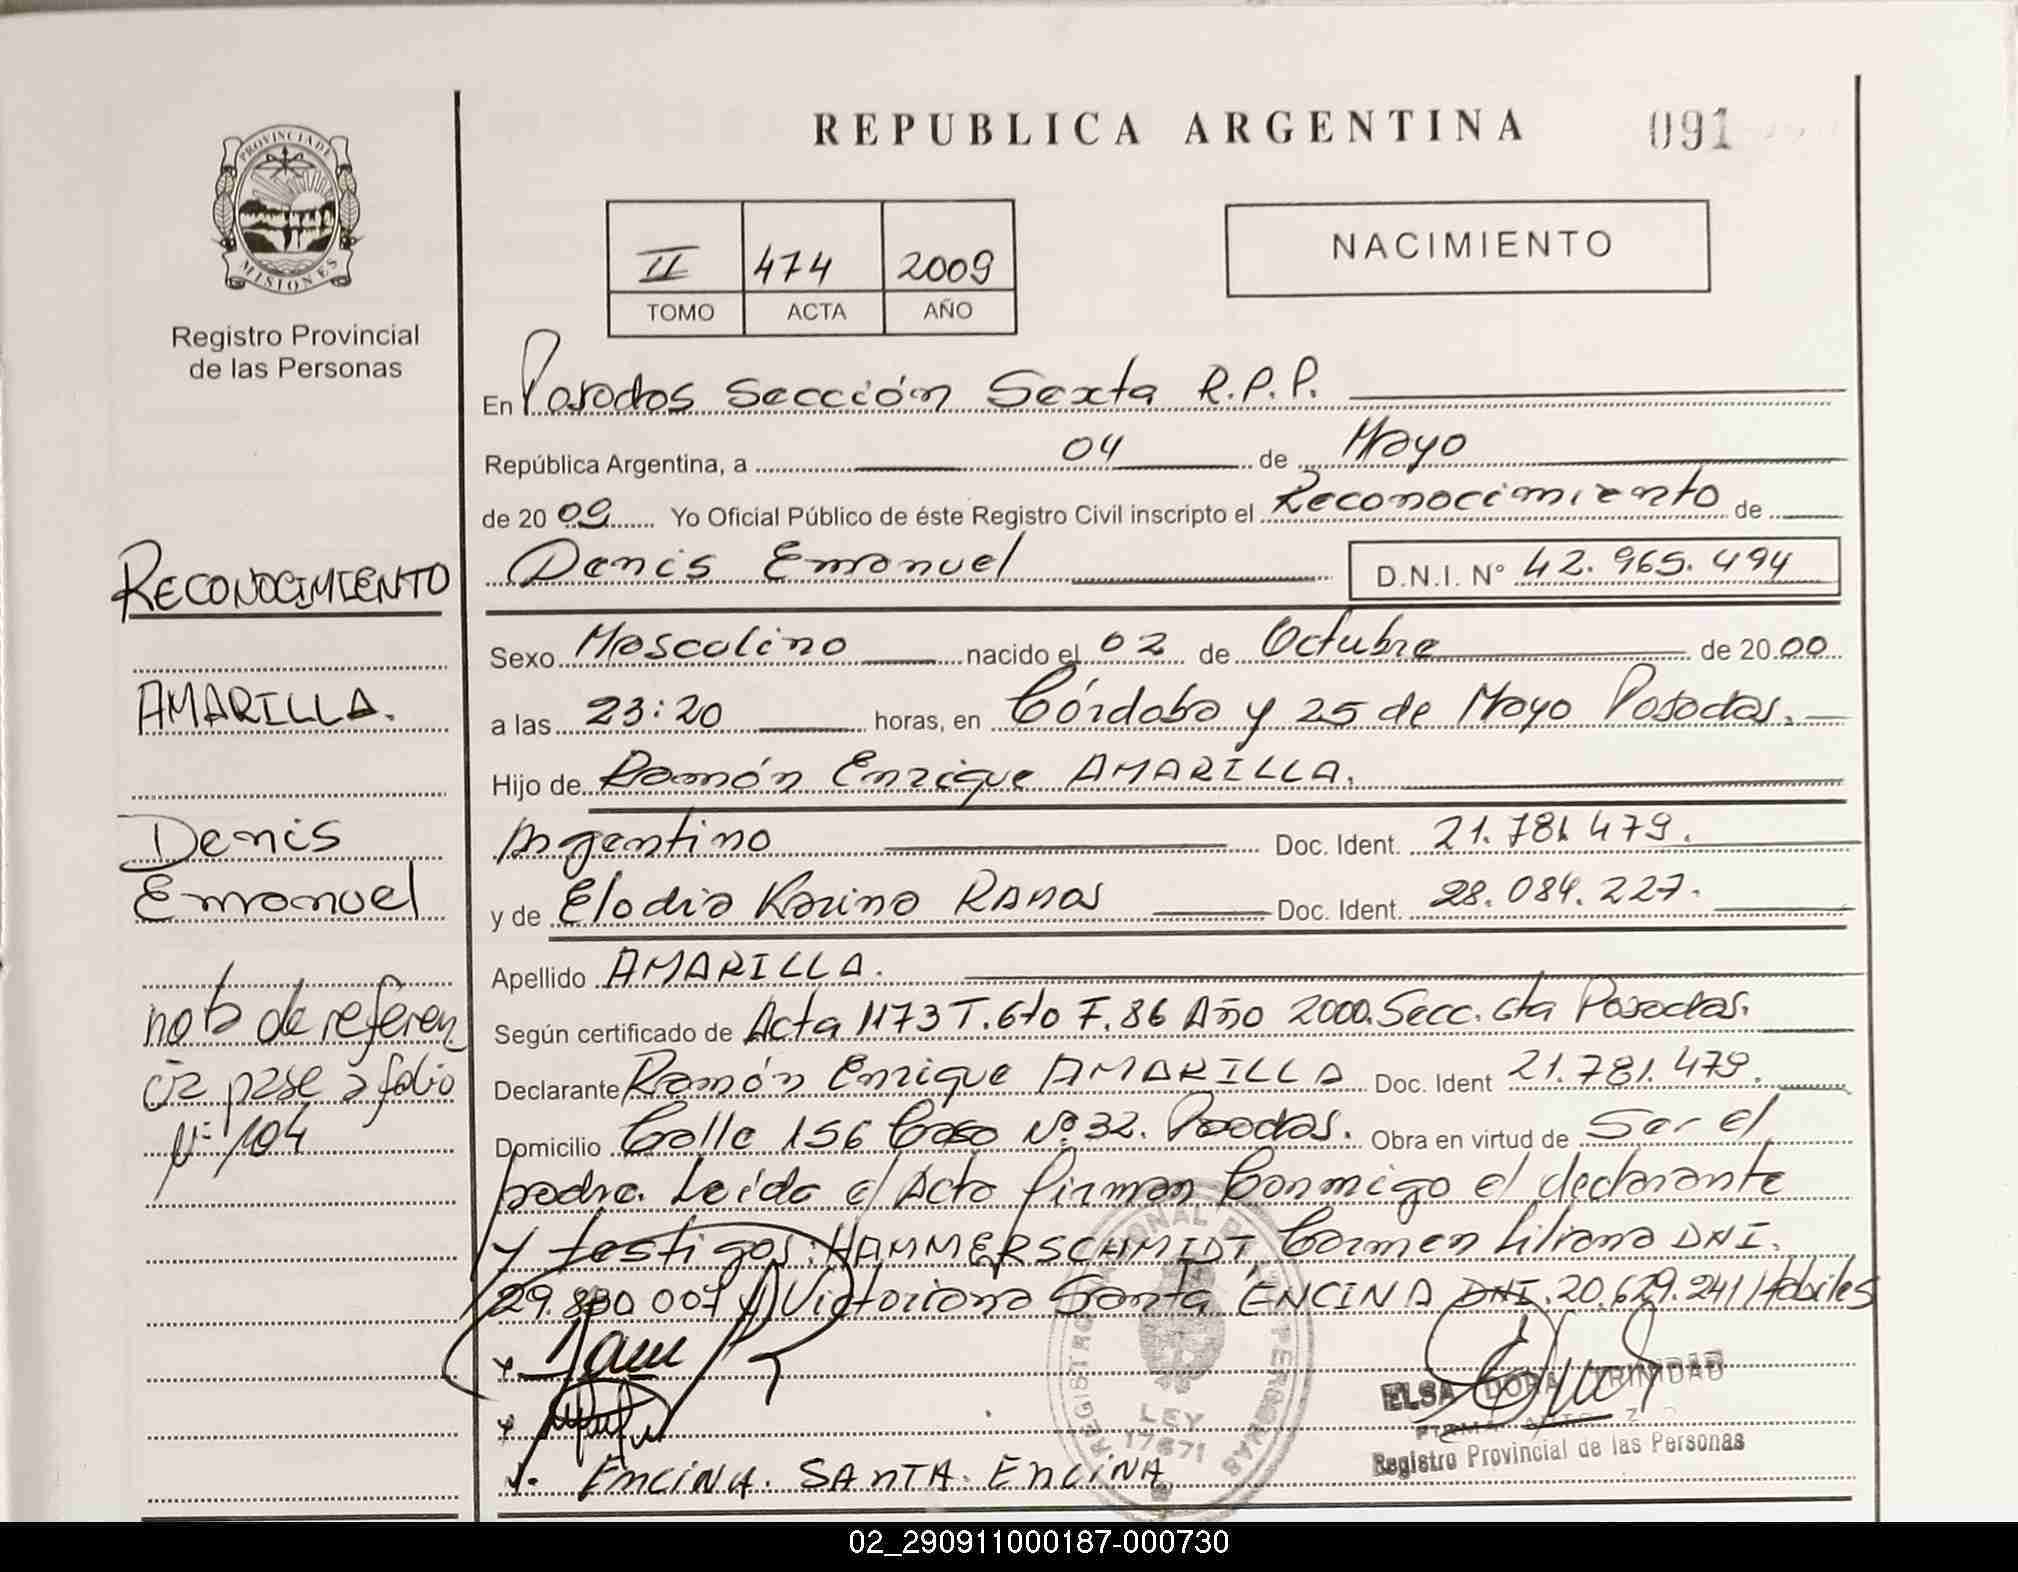 REPUBLICA ARGENTINA
091
PROVINCIA DE MISIONES
Registro Provincial
de las Personas
II 474 2009
TOMO ACTA AÑO
NACIMIENTO
En Posadas Sección Sexta R.P.P.
República Argentina, a 04 de Mayo
de 2009 Yo Oficial Público de éste Registro Civil inscripto el Reconocimiento de
Denis Emanuel D.N.I. N° 42.965.494
Sexo Masculino nacido el 02 de Octubre de 2000
a las 23:20 horas, en Córdoba y 25 de Mayo Posadas.
Hijo de Ramón Enrique AMARILLA.
Argentino Doc. Ident. 21.781.479.
y de Elodia Karina RAMOS Doc. Ident. 28.084.227.
Apellido AMARILLA.
Según certificado de Acta 1173 T. 6to F. 86 Año 2000. Secc. 6ta Posadas.
Declarante Ramón Enrique AMARILLA Doc. Ident 21.781.479.
Domicilio Calle 156 Casa Nº 32. Posadas. Obra en virtud de Ser el
padre. Leída el Acta firman Conmigo el declarante
y testigos: HAMMERSCHMIDT Carmen Liliana DNI.
y Victoriana Santa ENCINA DNI. 20.629.241 Hábiles
RECONOCIMIENTO
AMARILLA.
Denis
Emanuel
nota de referen
cia pase a folio
Nº 104
ENCINA. SANTA. ENCINA
REGISTRO NACIONAL DE LAS PERSONAS
LEY
17671
ELSA DORA TRINIDAD
Registro Provincial de las Personas
02_290911000187-000730